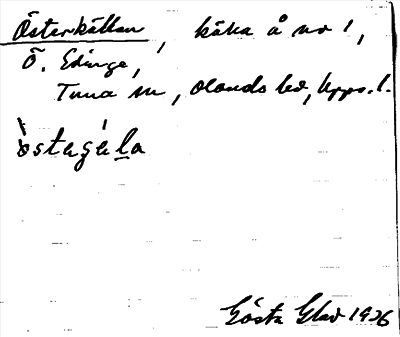 Österkällan, källa å nr 1,
Ö. Edinge,
Tuna sn, Olands hd, Upps. l.
östǝɡäla
Gösta Glad 1926